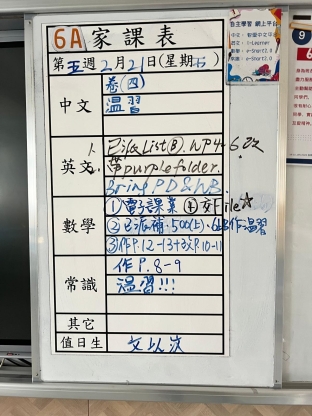 6A 家課表
第五週2月21日(星期五)
中文
卷(四)
溫習
英文
1. 已派List(B). WP4-6改
2. 帶purple folder.
Bring PD & WB
數學
①電子課業 ④交File☆
②已派補:500(上)、6上B作溫習
③作P.12-13+3文P.10-11
常識
作P.8-9
溫習!!!
其它
值日生
自主學習 網上平台
中文:
英文:i-Learner
數學:e-Smart2.0
常識:e-Smart2.0
9